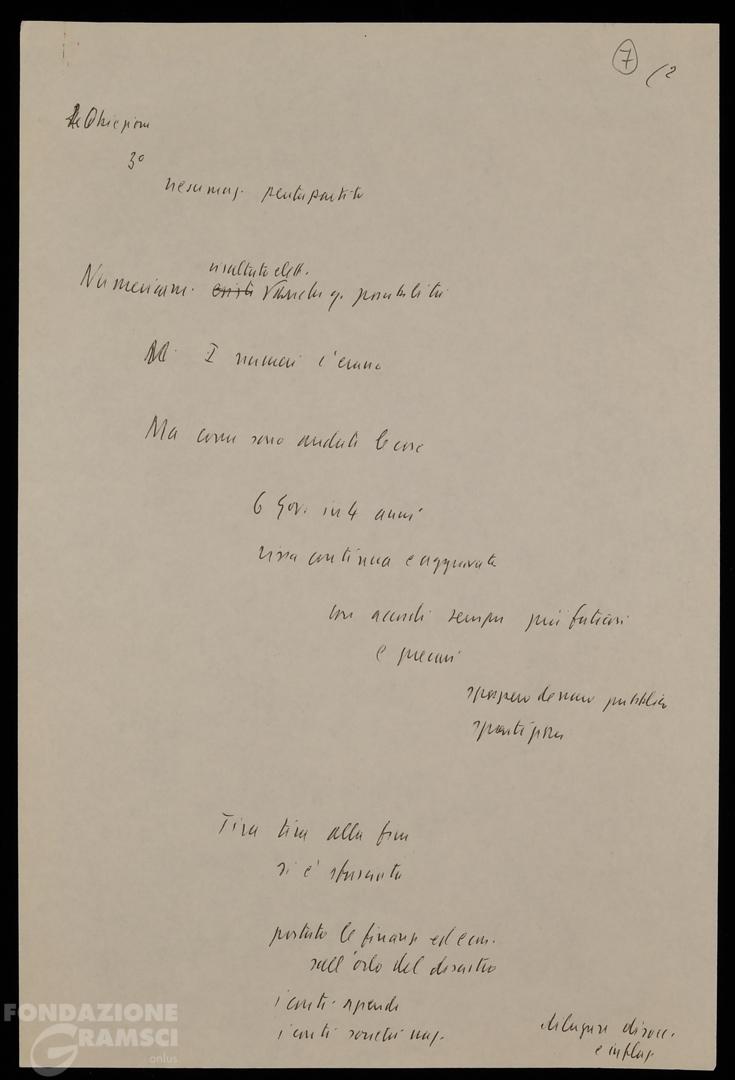 7 (2
Obiezioni
3°
pentapartito
risultato elett.
Numericam. possibilità
I numeri c'erano
Ma come sono andate le cose
6 Gov. in 4 anni
rissa continua e aggravata
con accordi sempre più faticosi
e precari
sperpero denaro pubblico
spartizione
Tira tira alla fine
si è sfasciato
portato le finanze ed econ.
sull'orlo del disastro
i conti
i conti
dilagare disocc.
e inflaz.
FONDAZIONE
GRAMSCI
onlus